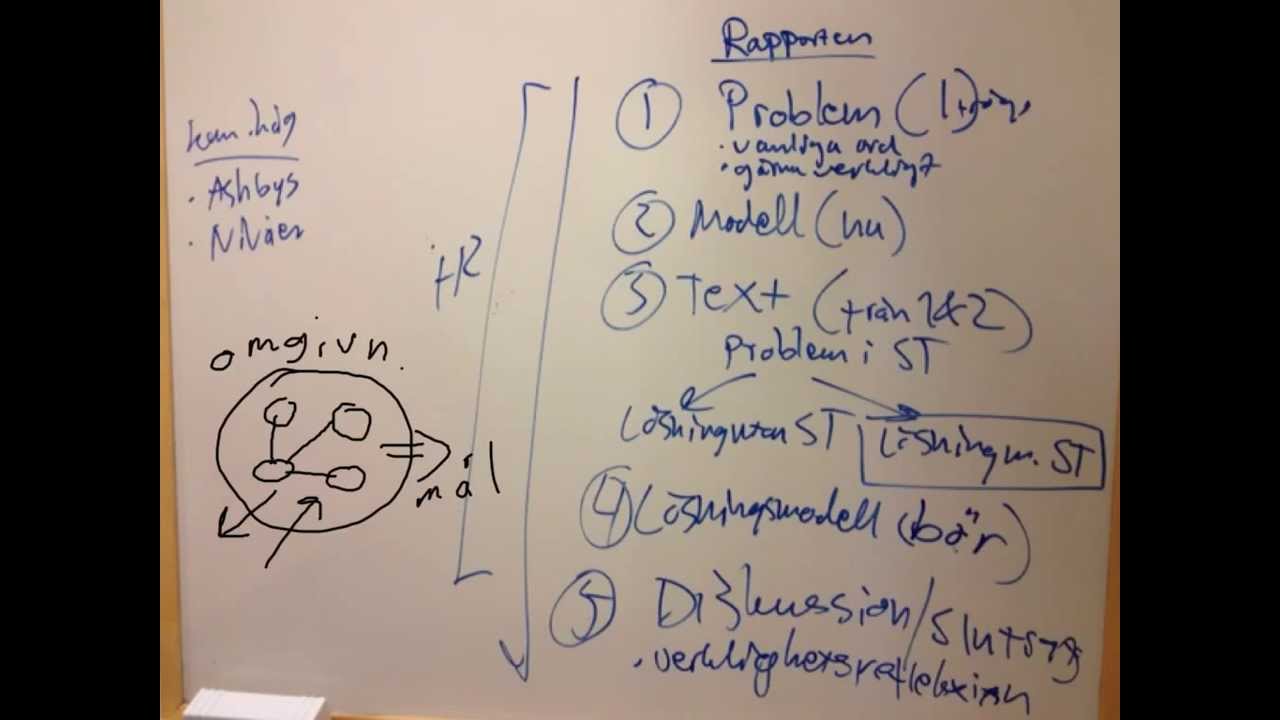 Rapporten
① Problem (
• vanliga ord
• gärna verkligt
② Modell (nu)
③ Text (från 1&2)
Problem i ST
Lösning utan ST
Lösning m. ST
④ Lösningsmodell (bör)
⑤ Diskussion/slutsats
• verklighetsreflektion
• Ashbys
• Nivåer
omgivn.
mål